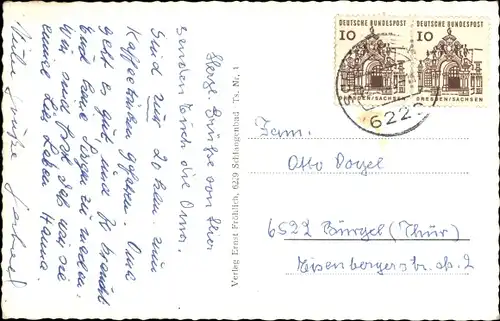 Herzl. Grüße von hier
senden Euch die Oma.
Sind nur 20 km. zum
Kaffeetrinken gefahren. Oma
geht es gut und Ihr braucht
Euch keine Sorgen zu machen.
Wir sind froh, daß wir sie
Hanna.
Viele Grüße
Verlag Ernst Fröhlich, 6229 Schlangenbad Ts. Nr. 1
DEUTSCHE BUNDESPOST
10
DRESDEN/SACHSEN
DEUTSCHE BUNDESPOST
10
DRESDEN/SACHSEN
622
Fam.
Otto Vogel
6522 Bürgel (Thür)
Eisenbergerstr. 2